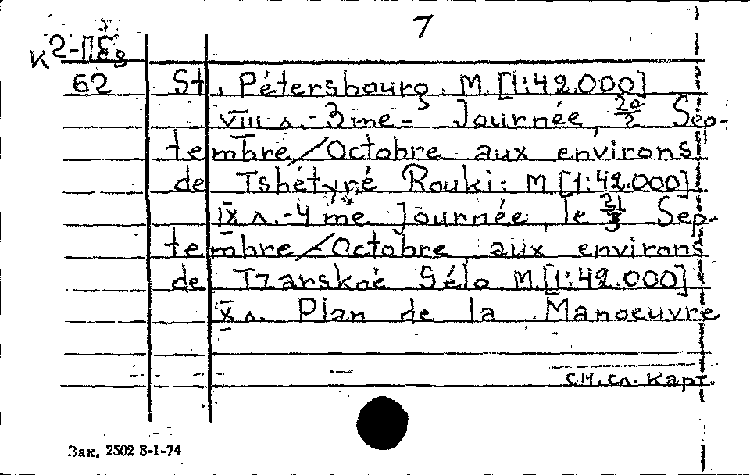 7
К 2-ПЕз
62 St. Pétersbourg. M. [1:42.000]
VIII л.-3me - Journée, 20/2 Sep-
tembre/Octobre aux environs
de Tshétyré Rouki. M [1:42.000].
IX л.-4me Journée, le 21/3 Sep-
tembre/Octobre aux environs
de Tzarskoé Sélo M. [1:42.000]
X л. Plan de la Manoeuvre
см. сл. карт.
Зак. 2502 8-1-74